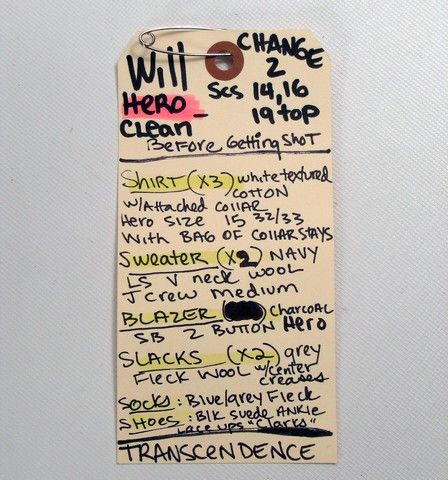 Will CHANGE 2
HERO - Scs 14,16
Clean 19 top
Before Getting SHOT
SHIRT (X3) white textured
cotton
w/Attached collar
Hero Size 15 32/33
With BAG OF COLLAR STAYS
Sweater (X2) NAVY
LS V neck wool
J crew medium
BLAZER charcoal
SB 2 BUTTON Hero
SLACKS (X2) grey
Fleck wool w/center
creases
SOCKS: Blue/grey Fleck
SHOES: Blk suede ANkle
Lace ups "Clarks"
TRANSCENDENCE